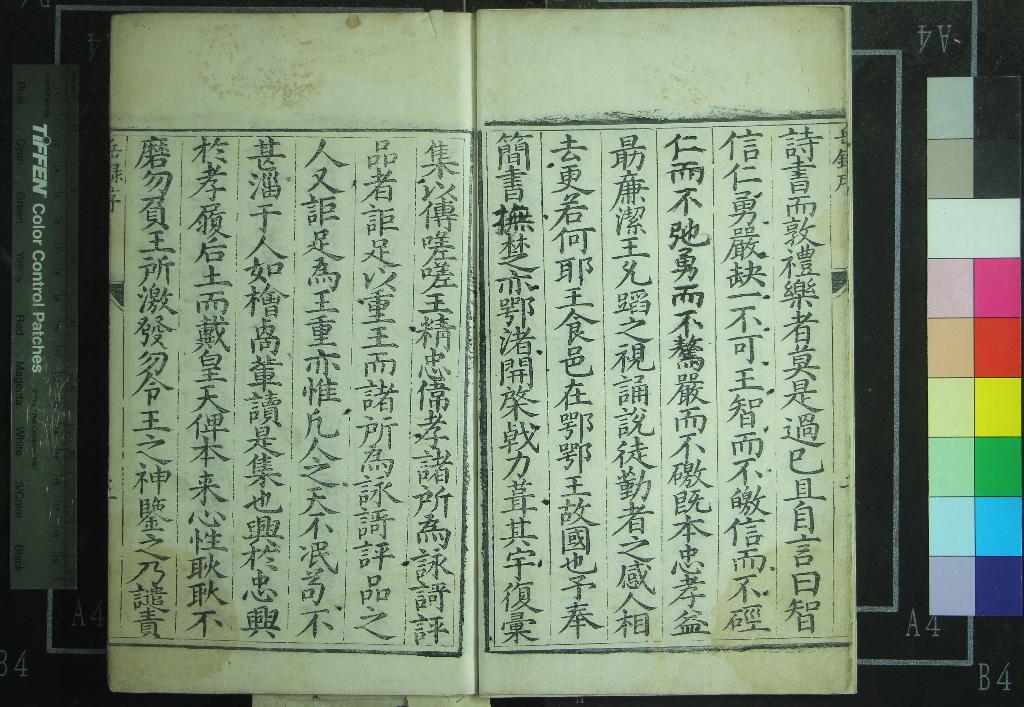 詩書而敦禮樂者莫是過已且自言曰智
信仁勇嚴缺一不可王智而不皦信而不硜
仁而不弛勇而不驁嚴而不礉既本忠孝益
勗廉潔王允蹈之視誦說徒勤者之感人相
去更若何耶王食邑在鄂鄂王故國也予奉
簡書撫楚亦鄂渚開棨戟力葺其宇復彙
集以傳嗟嗟王精忠偹孝諸所為詠謌評
品者詎足以重王而諸所為詠謌評品之
人又詎足為王重亦惟凢人之天不泯苟不
甚淄于人如檜卨軰讀是集也興於忠興
於孝履后土而戴皇天俾本来心性耿耿不
磨勿負王所激發勿令王之神鑒之乃譴責
岳錄序
TIFFEN Color Control Patches
Blue
Cyan
Green
Yellow
Red
Magenta
White
3/Color
Black
A4
A4
A4
B4
B4